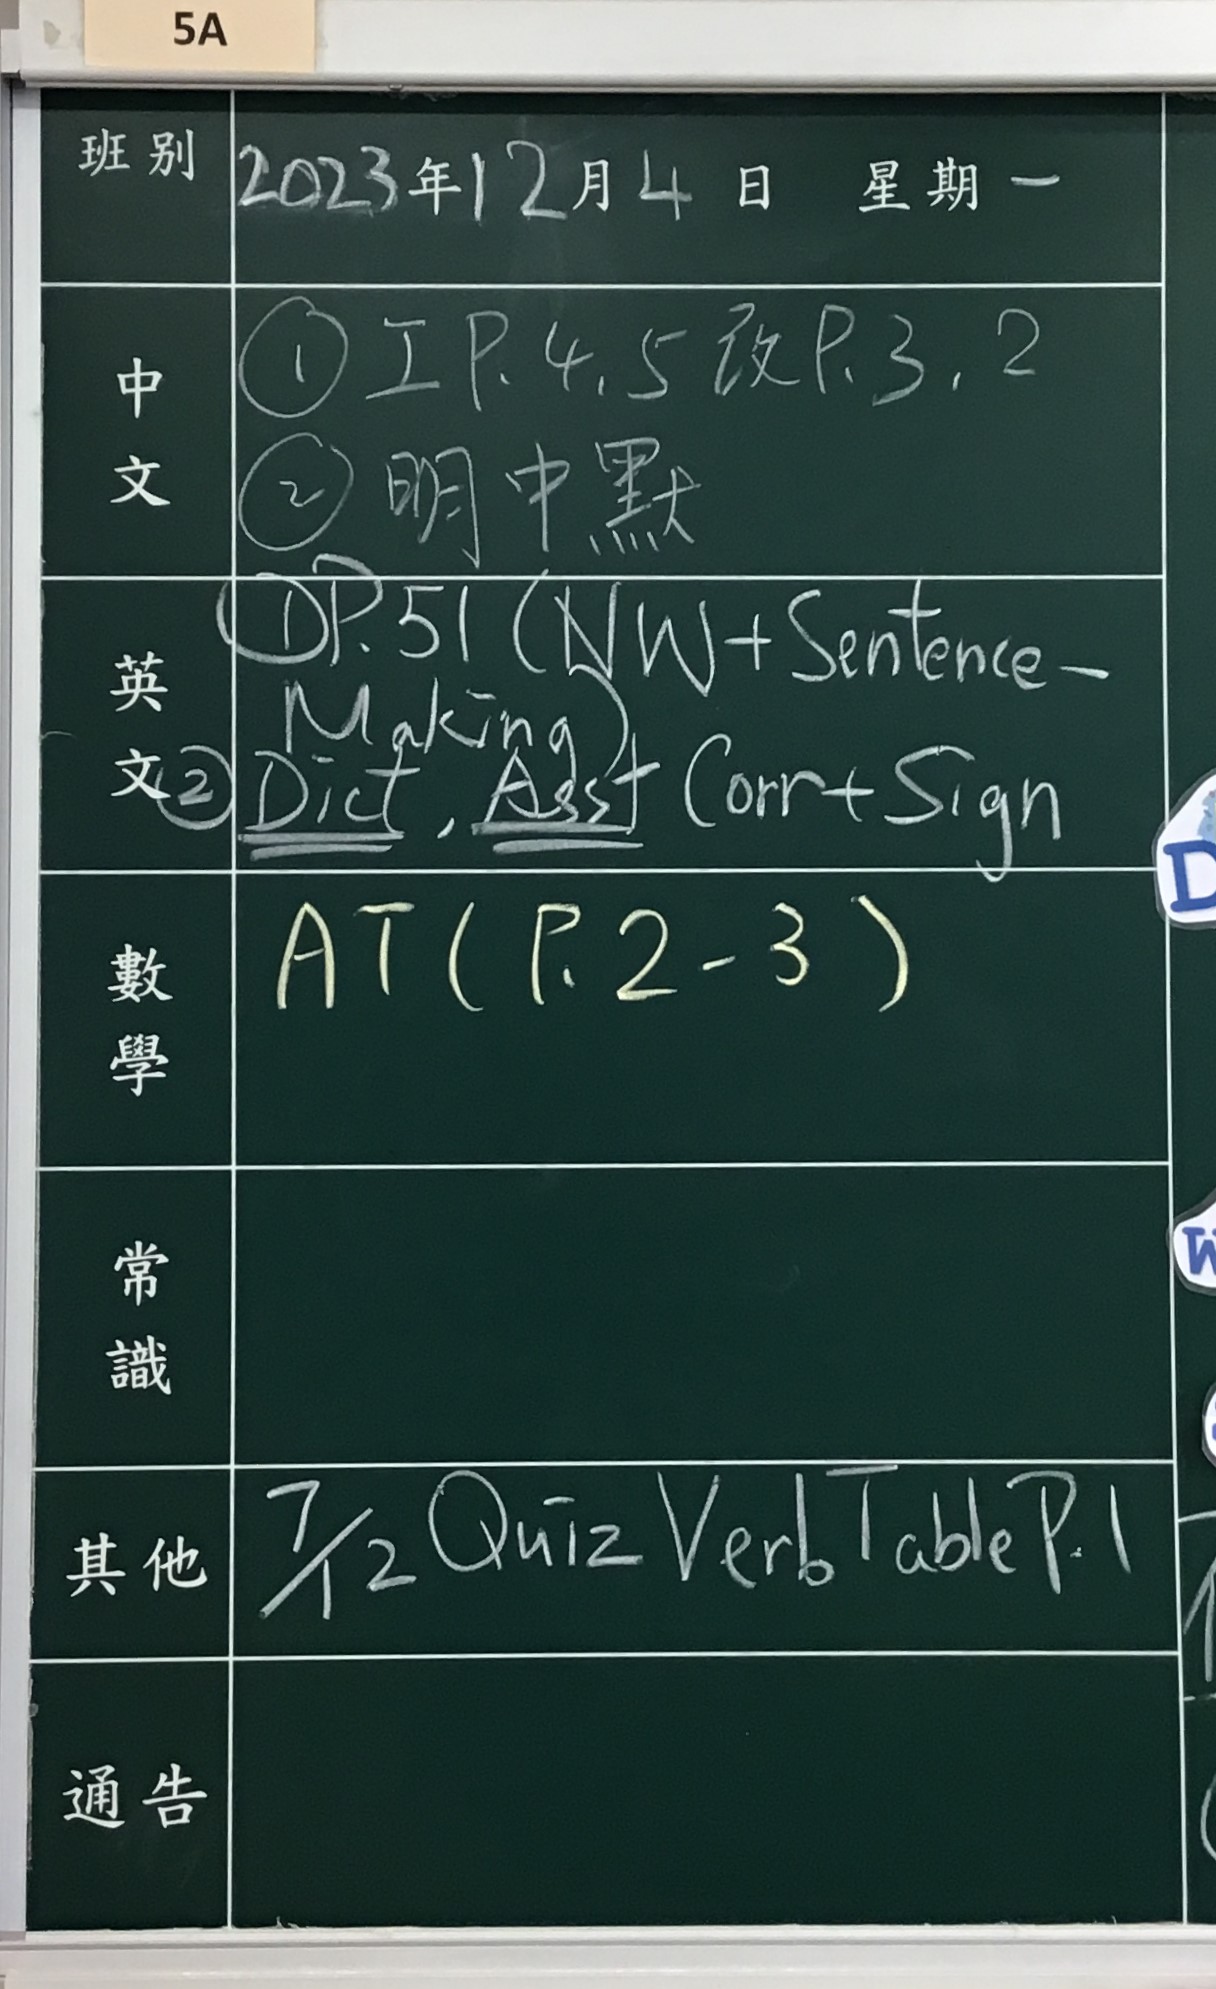 5A
班別
2023年12月4日 星期一
中文
① 工 P.4,5 改 P.3,2
② 明中默
英文
① P.51 (NW + Sentence-
Making)
② Dict, Asst Corr + Sign
數學
AT (P.2-3)
常識
其他
7/12 Quiz Verb Table P.1
通告
D
W